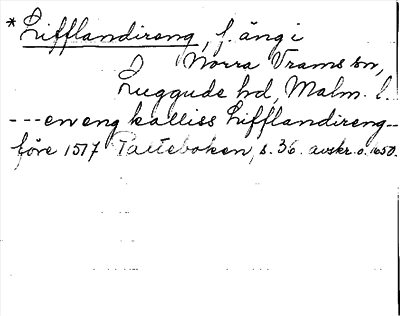 *Lifflandirang, f. äng i
Norra Vrams sn,
Luggude hd, Malm. l.
---en eng kalliss Lifflandireng--
före 1517 Palteboken, s. 36. avskr. o. 1650.